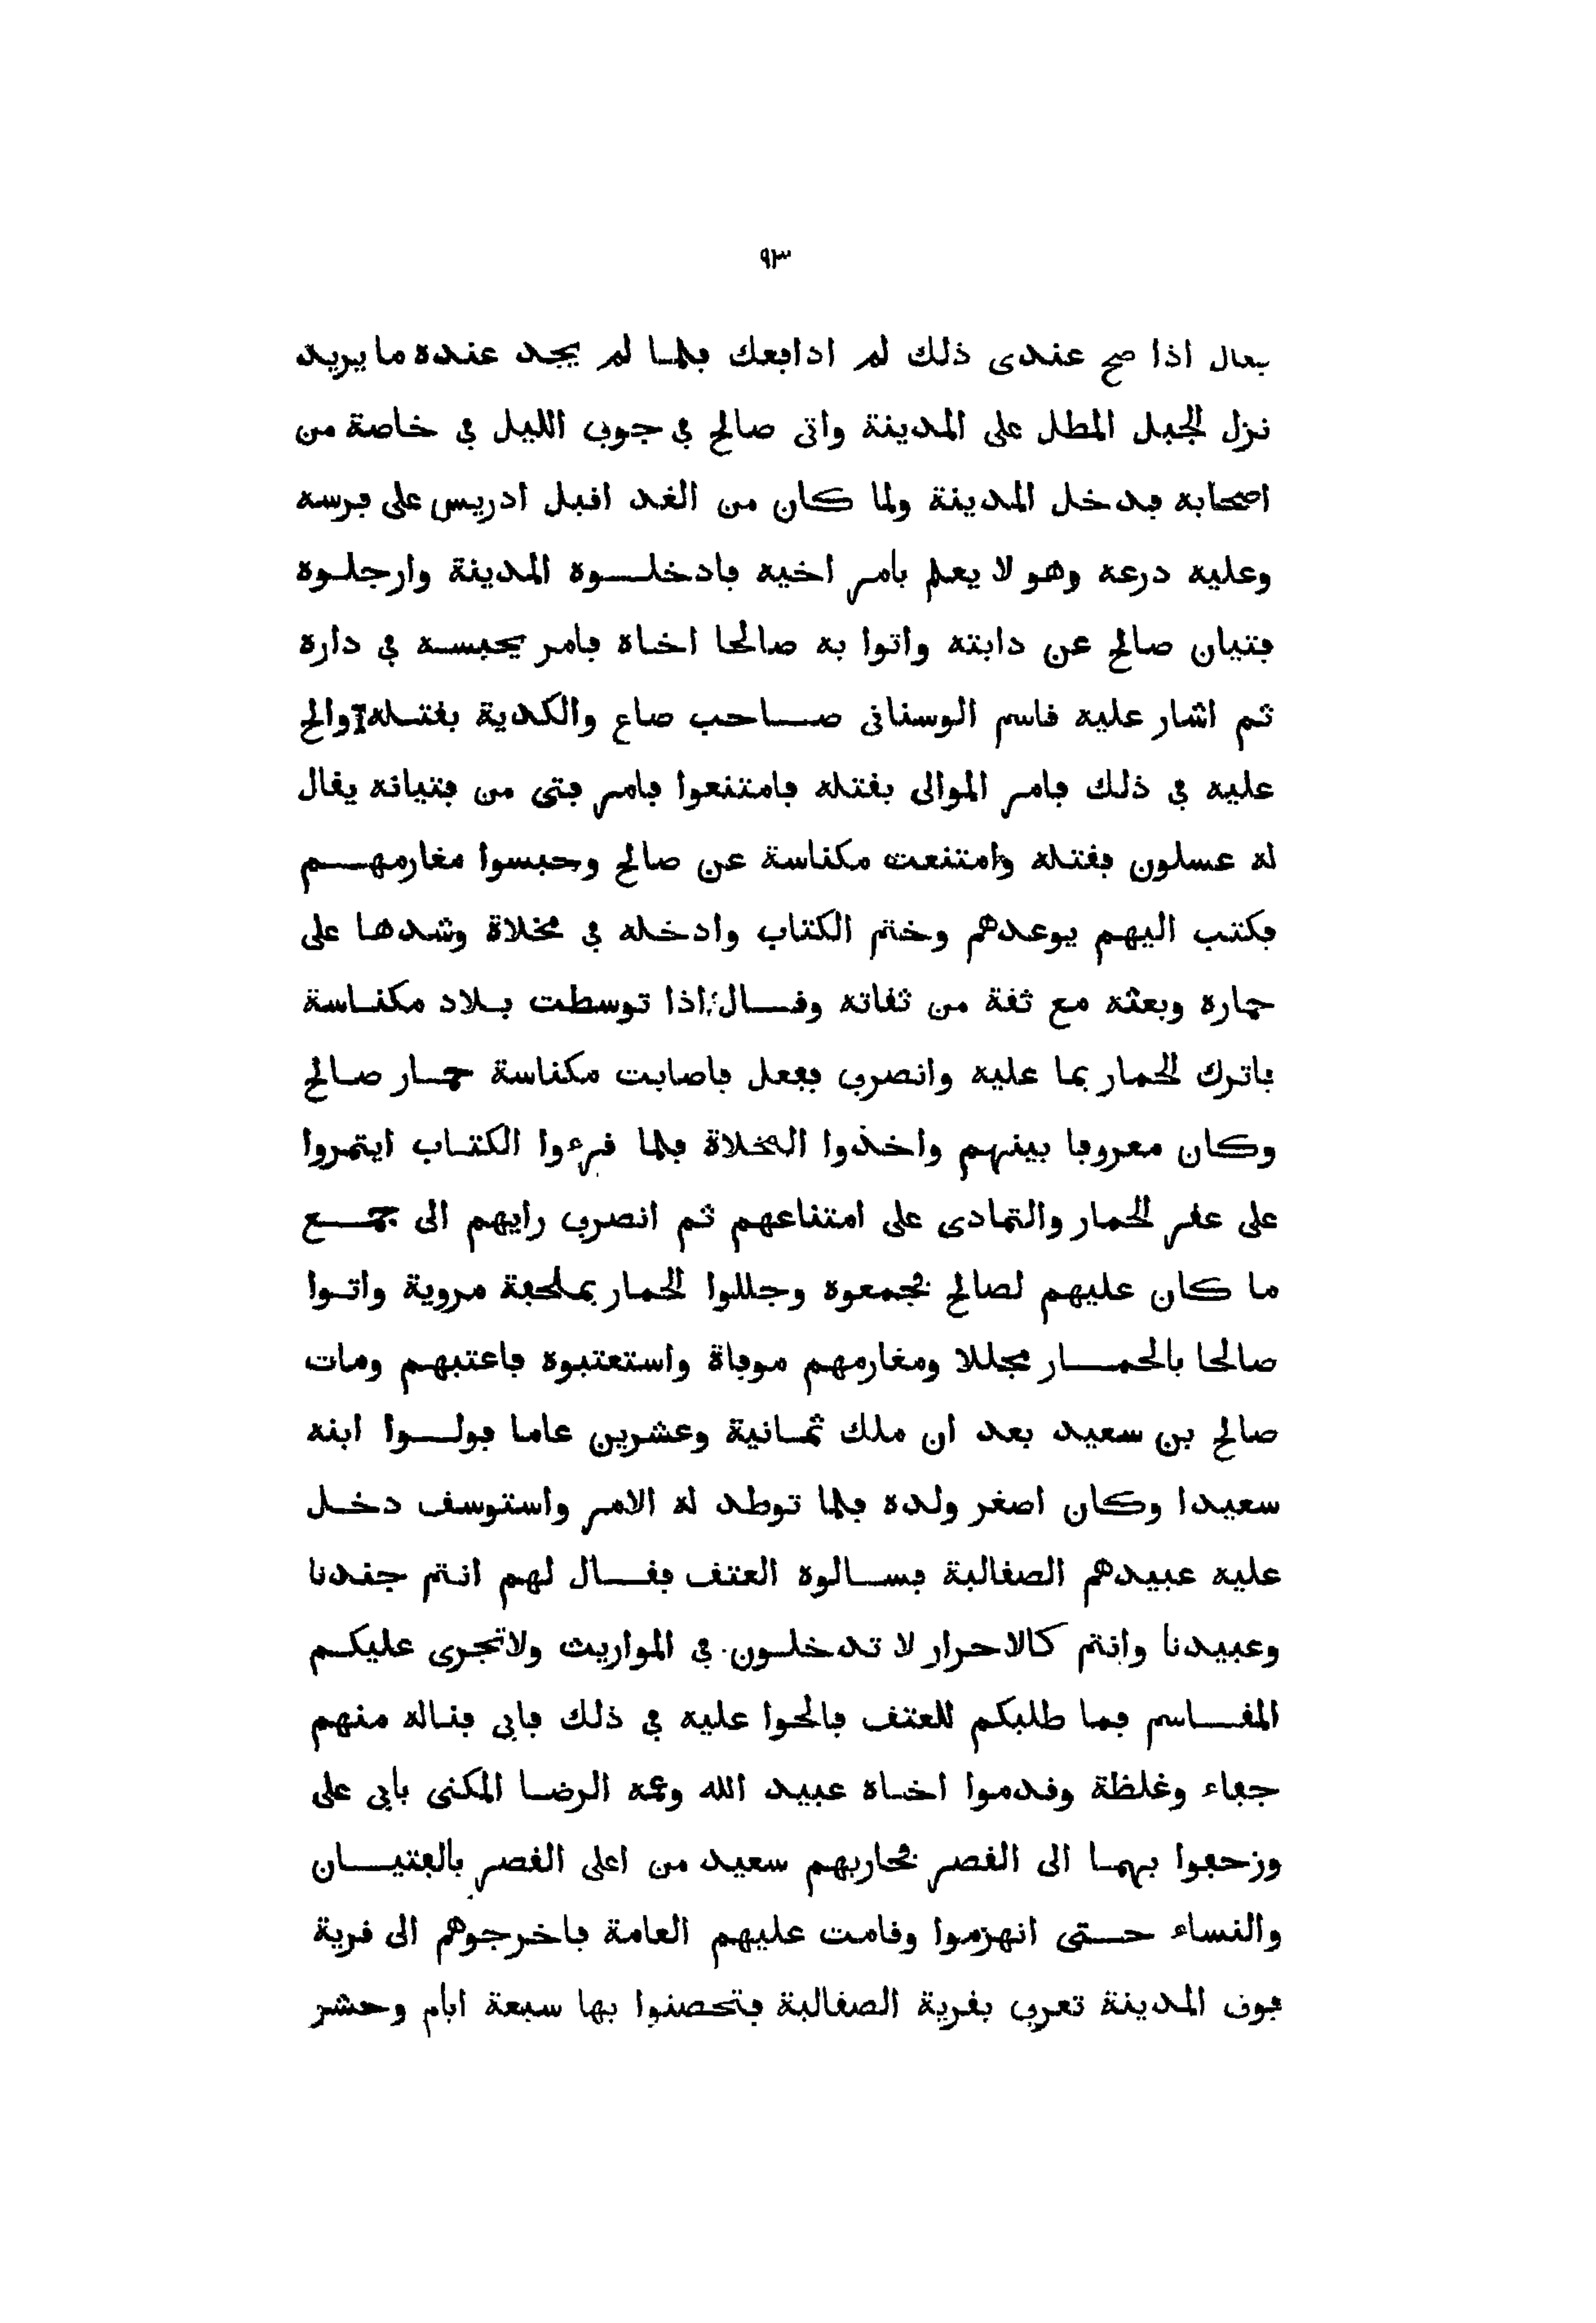 ٩٣
فقال اذا صح عندى ذلك لم ادافعك فلما لم يجد عنده ما يريد
نزل الجبل المطل على المدينة واتى صالح في جوف الليل في خاصة من
اصحابه فدخل المدينة ولما كان من الغد اقبل ادريس على فرسه
وعليه درعه وهو لا يعلم بامر اخيه فادخلوه المدينة وارجلوه
فتيان صالح عن دابته واتوا به صالحا اخاه فامر بحبسه في داره
ثم اشار عليه قاسم الوسنانى صاحب صاع والكدية بقتله والح
عليه في ذلك فامر الموالى بقتله فامتنعوا فامر فتى من فتيانه يقال
له عسلون فقتله وامتنعت مكناسة عن صالح وحبسوا مغارمهم
فكتب اليهم يوعدهم وختم الكتاب وادخله في مخلاة وشدها على
حماره وبعثه مع ثقة من ثقاته وقال اذا توسطت بلاد مكناسة
فاترك الحمار بما عليه وانصرف ففعل فاصابت مكناسة حمار صالح
وكان معروفا بينهم واخذوا المخلاة فلما قرءوا الكتاب ايتمروا
على عقر الحمار والتمادى على امتناعهم ثم انصرف رايهم الى جمع
ما كان عليهم لصالح فجمعوه وجللوا الحمار بملحفة مروية واتوا
صالحا بالحمار مجللا ومغارمهم موفاة واستعتبوه فاعتبهم ومات
صالح بن سعيد بعد ان ملك ثمانية وعشرين عاما فولوا ابنه
سعيدا وكان اصغر ولده فلما توطد له الامر واستوسق دخل
عليه عبيدهم الصقالبة فسالوه العتق فقال لهم انتم جندنا
وعبيدنا وانتم كالاحرار لا تدخلون في المواريث ولا تجرى عليكم
المقاسم فما طلبكم للعتق فالحوا عليه في ذلك فابى فناله منهم
جفاء وغلظة وقدموا اخاه عبيد الله وعمه الرضا المكنى بابى على
وزحفوا بهما الى القصر فحاربهم سعيد من اعلى القصر بالفتيان
والنساء حتى انهزموا وقامت عليهم العامة فاخرجوهم الى قرية
فوق المدينة تعرف بقرية الصقالبة فتحصنوا بها سبعة ايام وحشر